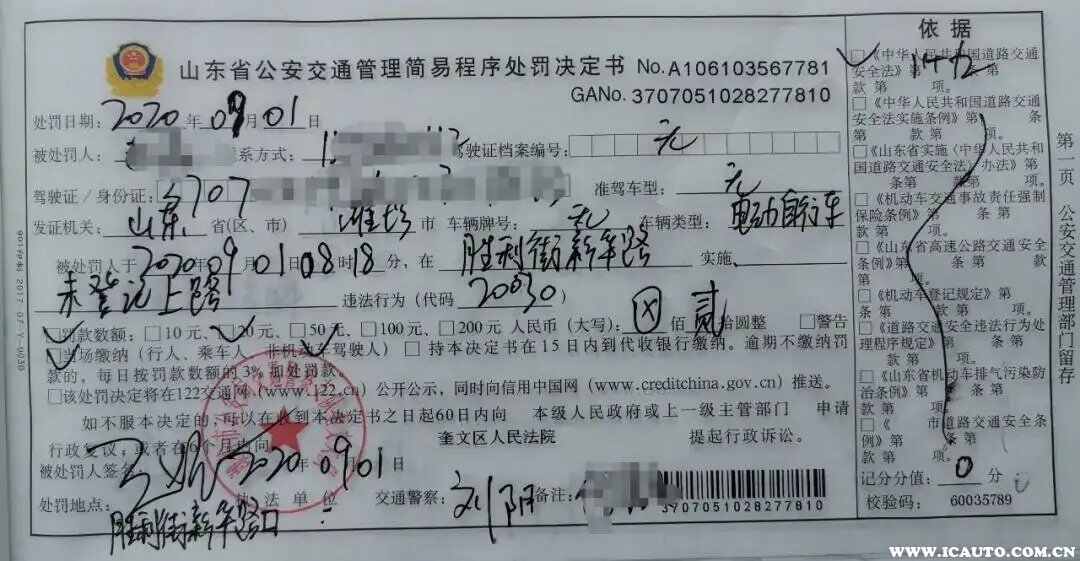 山东省公安交通管理简易程序处罚决定书 No.A106103567781
GANo. 3707051028277810
处罚日期：2020年09月01日
被处罚人： 联系方式：1 驾驶证档案编号：无
驾驶证/身份证：3707 准驾车型：无
发证机关：山东省(区、市)潍坊市 车辆牌号：无 车辆类型：电动自行车
被处罚人于2020年09月01日08时18分，在胜利街新华路实施
未登记上路违法行为（代码）20030
☑罚款数额：□10元、☑20元、□50元、□100元、□200元 人民币（大写）：⊠佰贰拾圆整 □警告
☑当场缴纳（行人、乘车人、非机动车驾驶人）□持本决定书在15日内到代收银行缴纳。逾期不缴纳罚
款的，每日按罚款数额的3%加处罚款。
□该处罚决定将在122交通网（www.122.cn）公开公示，同时向信用中国网（www.creditchina.gov.cn）推送。
如不服本决定的，可以在收到本决定书之日起60日内向 本级人民政府或上一级主管部门 申请
行政复议，或者在6个月内向 奎文区人民法院 提起行政诉讼。
被处罚人签名 2020年09月01日
处罚地点： 执法单位： 交通警察：刘阴 备注：
胜利街新华路口
3707051028277810
依据
☑《中华人民共和国道路交通
安全法》第 条第
款第 项。
□《中华人民共和国道路交通
安全法实施条例》第 条
第 款第 项。
□《山东省实施〈中华人民共和
国道路交通安全法〉办法》第
条第 款第 项。
□《机动车交通事故责任强制
保险条例》第 条第 款
□《山东省高速公路交通安全
条例》第 条第 款
□《机动车登记规定》第
条第 款第 项。
□《道路交通安全违法行为处
理程序规定》第 条
第 款第 项。
□《山东省机动车排气污染防
治条例》第 条第 款
□《 市道路交通安全条
例》第 条第
款第 项。
记分分值：0分
校验码： 60035789
第一页 公安交通管理部门留存
WWW.ICAUTO.COM.CN